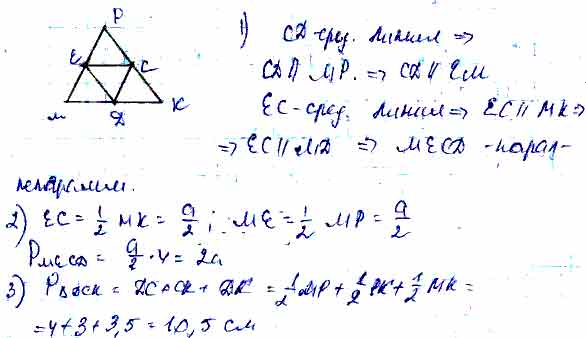 P
E C
M D K
1) CD-сред. линия ⇒
CD || MP. ⇒ CD || EM
EC-сред. линия ⇒ EC || MK ⇒
⇒ EC || MD ⇒ MECD - парал-
лелограмм.
2) EC = 1/2 MK = a/2; ME = 1/2 MP = a/2
P MECD = a/2 · 4 = 2a
3) P△DCK = DC + CK + DK = 1/2 MP + 1/2 PK + 1/2 MK =
= 4 + 3 + 3,5 = 10,5 см